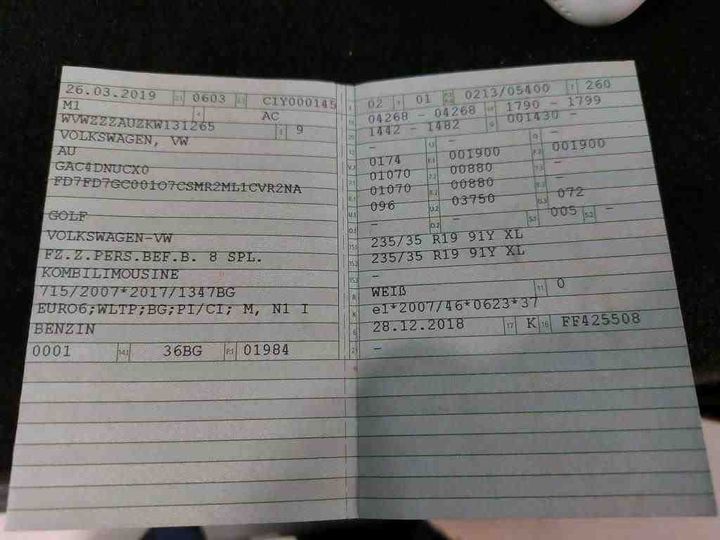 26.03.2019 0603 C1Y000145
M1 AC
WVWZZZAUZKW131265 9
VOLKSWAGEN, VW
AU
GAC4DNUCX0
FD7FD7GC001O7CSMR2ML1CVR2NA
GOLF
VOLKSWAGEN-VW
FZ.Z.PERS.BEF.B. 8 SPL.
KOMBILIMOUSINE
715/2007*2017/1347BG
EURO6;WLTP;BG;PI/CI; M, N1 I
BENZIN
0001 36BG 01984
02 01 0213/05400 260
04268 - 04268 1790 - 1799
1442 - 1482 001430 -
- -
0174 001900 001900
01070 00880 -
01070 00880 -
096 03750 072
- - 005 -
235/35 R19 91Y XL
235/35 R19 91Y XL
-
WEIß 0
e1*2007/46*0623*37
28.12.2018 K FF425508
-